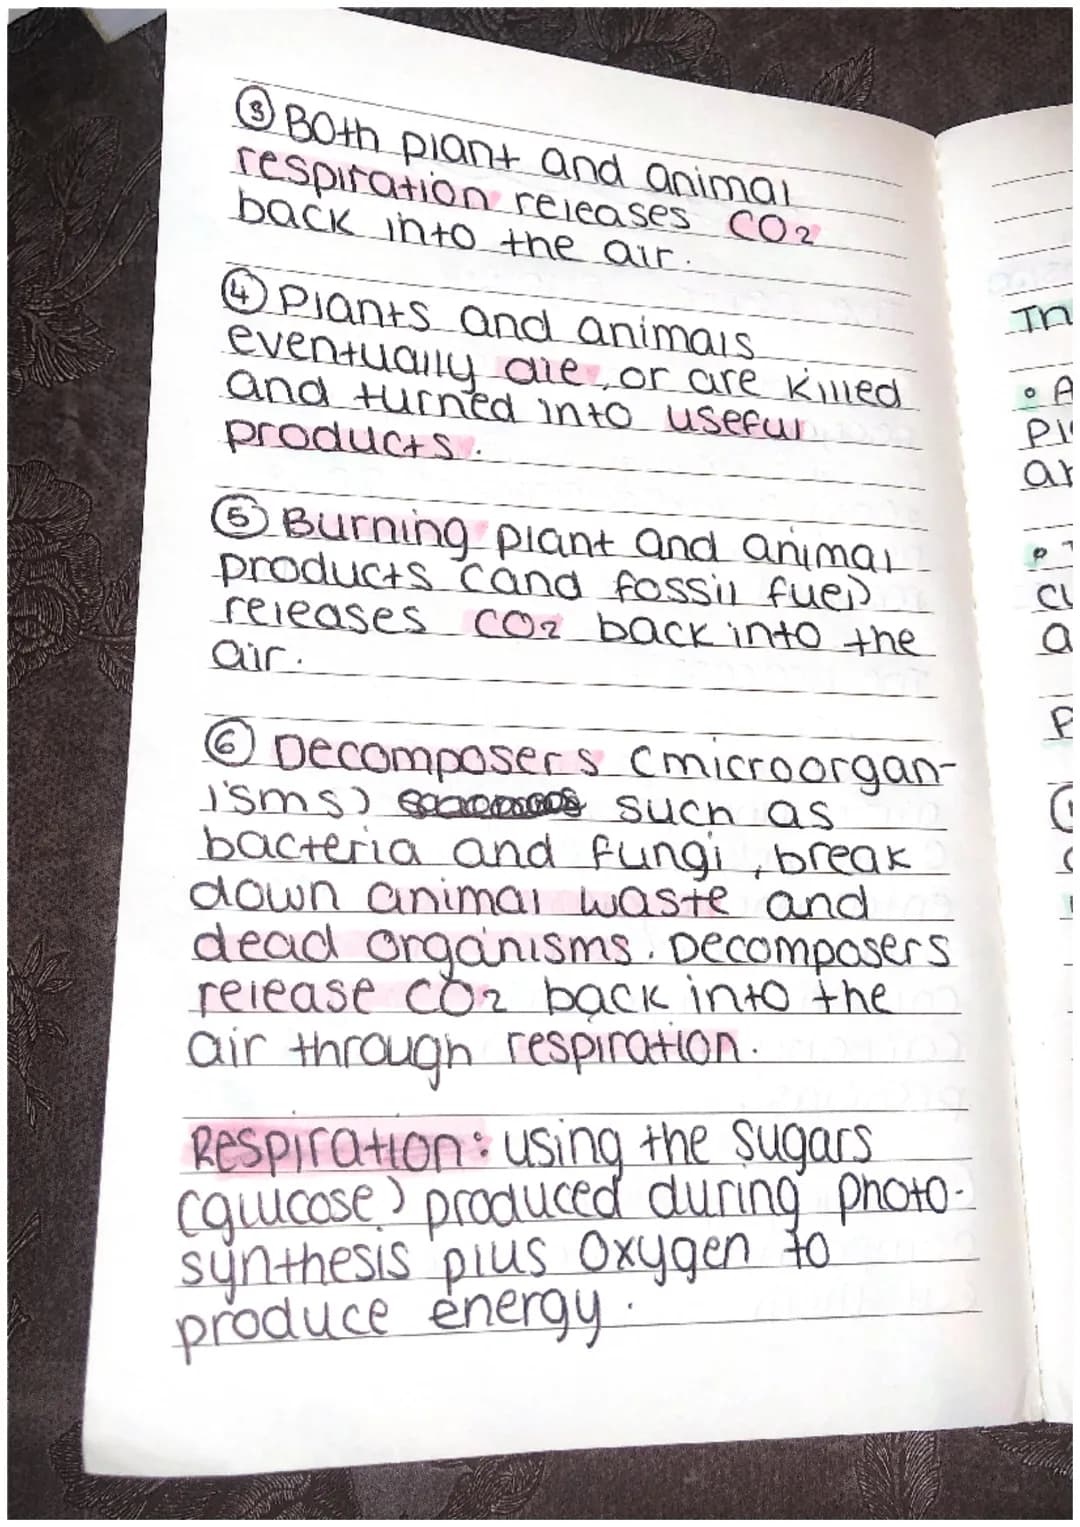 ③ Both plant and animal
respiration releases CO2
back into the air.
④ Plants and animals
eventually die, or are killed
and turned into useful
products.
⑤ Burning plant and animal
products (and fossil fuel)
releases CO2 back into the
air.
⑥ Decomposers (microorgan-
isms) such as
bacteria and fungi, break
down animal waste and
dead organisms. Decomposers
release CO2 back into the
air through respiration.
Respiration: using the sugars
(glucose) produced during photo-
synthesis plus Oxygen to
produce energy.
In